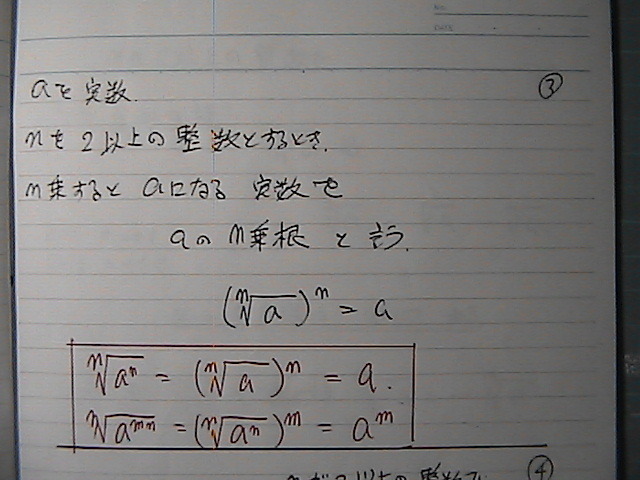 NO.
DATE
③
aを実数.
nを2以上の整数とするとき.
n乗すると aになる 実数を
aの n乗根 と言う.
(ⁿ√a)ⁿ = a
ⁿ√aⁿ = (ⁿ√a)ⁿ = a.
ⁿ√aᵐⁿ = (ⁿ√aⁿ)ᵐ = aᵐ
④
nが2以上の整数で